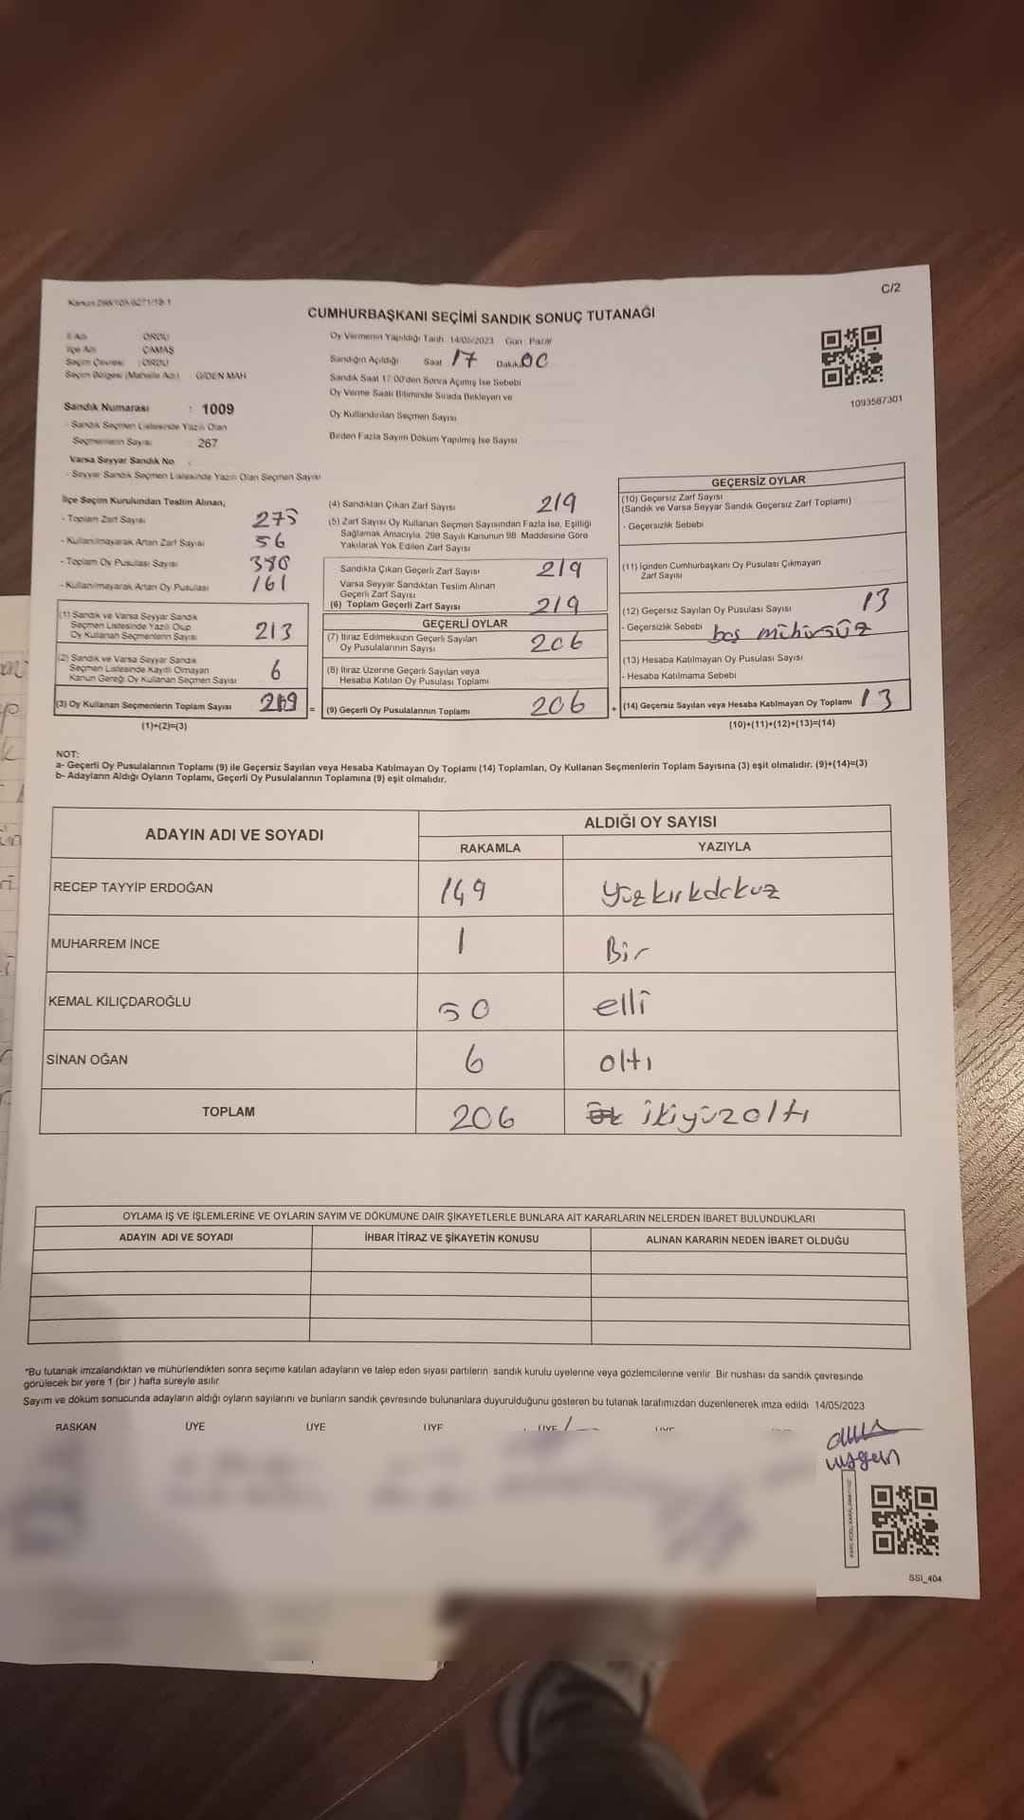 C/2
CUMHURBAŞKANI SEÇİMİ SANDIK SONUÇ TUTANAĞI
ORDU
İlçe Adı ÇAMAŞ
Seçim Çevresi : ORDU
Seçim Bölgesi (Mahalle Adı) : GİDEN MAH
Sandık Numarası : 1009
- Sandık Seçmen Listesinde Yazılı Olan
Seçmenlerin Sayısı 267
Varsa Seyyar Sandık No
- Seyyar Sandık Seçmen Listesinde Yazılı Olan Seçmen Sayısı
Oy Vermenin Yapıldığı Tarih 14/05/2023 Gün : Pazar
Sandığın Açıldığı Saat 17 Dakika 00
Sandık Saat 17:00'den Sonra Açılmış İse Sebebi
Oy Verme Saati Bitiminde Sırada Bekleyen ve
Oy Kullandırılan Seçmen Sayısı
Birden Fazla Sayım Döküm Yapılmış İse Sayısı
1093587301
İlçe Seçim Kurulundan Teslim Alınan,
- Toplam Zarf Sayısı 275
- Kullanılmayarak Artan Zarf Sayısı 56
- Toplam Oy Pusulası Sayısı 380
- Kullanılmayarak Artan Oy Pusulası 161
(1) Sandık ve Varsa Seyyar Sandık
Seçmen Listesinde Yazılı Olup
Oy Kullanan Seçmenlerin Sayısı 213
(2) Sandık ve Varsa Seyyar Sandık
Seçmen Listesinde Kayıtlı Olmayan
Kanun Gereği Oy Kullanan Seçmen Sayısı 6
(3) Oy Kullanan Seçmenlerin Toplam Sayısı 219 =
(1)+(2)=(3)
(4) Sandıktan Çıkan Zarf Sayısı 219
(5) Zarf Sayısı Oy Kullanan Seçmen Sayısından Fazla İse, Eşitliği
Sağlamak Amacıyla, 298 Sayılı Kanunun 98. Maddesine Göre
Yakılarak Yok Edilen Zarf Sayısı
Sandıkta Çıkan Geçerli Zarf Sayısı 219
Varsa Seyyar Sandıktan Teslim Alınan
Geçerli Zarf Sayısı
(6) Toplam Geçerli Zarf Sayısı 219
GEÇERLİ OYLAR
(7) İtiraz Edilmeksizin Geçerli Sayılan
Oy Pusulalarının Sayısı 206
(8) İtiraz Üzerine Geçerli Sayılan veya
Hesaba Katılan Oy Pusulası Toplamı
(9) Geçerli Oy Pusulalarının Toplamı 206 +
GEÇERSİZ OYLAR
(10) Geçersiz Zarf Sayısı
(Sandık ve Varsa Seyyar Sandık Geçersiz Zarf Toplamı)
- Geçersizlik Sebebi
(11) İçinden Cumhurbaşkanı Oy Pusulası Çıkmayan
Zarf Sayısı
(12) Geçersiz Sayılan Oy Pusulası Sayısı 13
- Geçersizlik Sebebi boş mühürsüz
(13) Hesaba Katılmayan Oy Pusulası Sayısı
- Hesaba Katılmama Sebebi
(14) Geçersiz Sayılan veya Hesaba Katılmayan Oy Toplamı 13
(10)+(11)+(12)+(13)=(14)
NOT:
a- Geçerli Oy Pusulalarının Toplamı (9) ile Geçersiz Sayılan veya Hesaba Katılmayan Oy Toplamı (14) Toplamları, Oy Kullanan Seçmenlerin Toplam Sayısına (3) eşit olmalıdır. (9)+(14)=(3)
b- Adayların Aldığı Oyların Toplamı, Geçerli Oy Pusulalarının Toplamına (9) eşit olmalıdır.
ADAYIN ADI VE SOYADI
ALDIĞI OY SAYISI
RAKAMLA YAZIYLA
RECEP TAYYİP ERDOĞAN 149 Yüzkırkdokuz
MUHARREM İNCE 1 Bir
KEMAL KILIÇDAROĞLU 50 elli
SİNAN OĞAN 6 altı
TOPLAM 206 ikiyüzaltı
OYLAMA İŞ VE İŞLEMLERİNE VE OYLARIN SAYIM VE DÖKÜMÜNE DAİR ŞİKAYETLERLE BUNLARA AİT KARARLARIN NELERDEN İBARET BULUNDUKLARI
ADAYIN ADI VE SOYADI İHBAR İTİRAZ VE ŞİKAYETİN KONUSU ALINAN KARARIN NEDEN İBARET OLDUĞU
*Bu tutanak imzalandıktan ve mühürlendikten sonra seçime katılan adayların ve talep eden siyasi partilerin sandık kurulu üyelerine veya gözlemcilerine verilir. Bir nüshası da sandık çevresinde
görülecek bir yere 1 (bir ) hafta süreyle asılır.
Sayım ve döküm sonucunda adayların aldığı oyların sayılarını ve bunların sandık çevresinde bulunanlara duyurulduğunu gösteren bu tutanak tarafımızdan düzenlenerek imza edildi. 14/05/2023
BAŞKAN ÜYE ÜYE ÜYE ÜYE
SSI_404